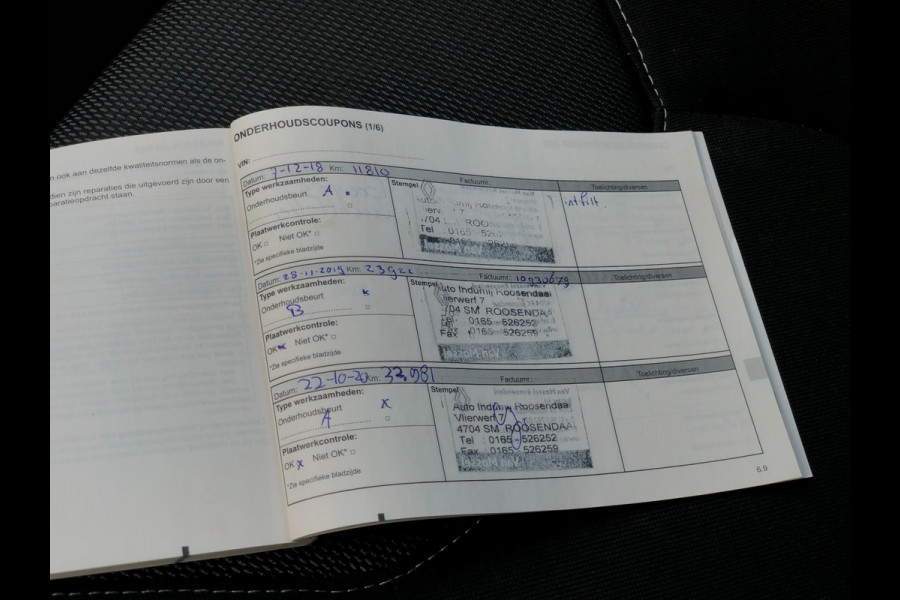 n ook aan dezelfde kwaliteitsnormen als de on-
zien zijn reparaties die uitgevoerd zijn door een
paratieopdracht staan.
ONDERHOUDSCOUPONS (1/6)
VIN:
Datum: 7-12-18 Km: 11810 Factuurnr.: Toelichting/diversen
Type werkzaamheden: Stempel
Onderhoudsbeurt A
Plaatwerkcontrole:
OK □ Niet OK* □
*Zie specifieke bladzijde
ROO
Tel : 0165
Datum: 28-11-2019 Km: Factuurnr.: Toelichting/diversen
Type werkzaamheden: Stempel
Onderhoudsbeurt x
B
Plaatwerkcontrole:
OK x Niet OK* □
*Zie specifieke bladzijde
Auto Indumij Roosendaal
Vlierwerf 7
4704 SM ROOSENDAAL
Tel : 0165 - 526252
Fax : 0165 - 526259
Datum: 22-10-20 Km: 32.981 Factuurnr.: Toelichting/diversen
Type werkzaamheden: Stempel
Onderhoudsbeurt x
A
Plaatwerkcontrole:
OK x Niet OK* □
*Zie specifieke bladzijde
Auto Indumij Roosendaal
Vlierwerf 7
4704 SM ROOSENDAAL
Tel : 0165 - 526252
Fax : 0165 - 526259
6.9